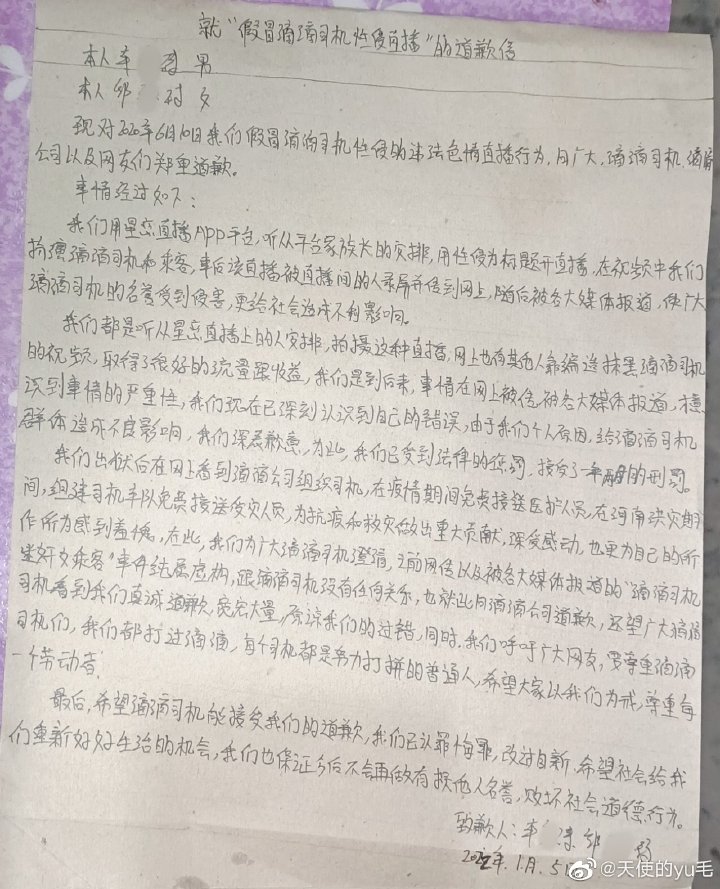 就“假冒滴滴司机性侵直播”的道歉信
本人 男
本人 女
现对2020年6月10日我们假冒滴滴司机性侵的违法色情直播行为，向广大，滴滴司机、滴滴
公司以及网友们郑重道歉。
事情经过如下：
我们用星恋直播APP平台，听从平台家族长的安排，用性侵为标题开直播，在视频中我们
扮演滴滴司机和乘客，事后该直播被直播间的人录屏并传到网上，随后被各大媒体报道，使广大
滴滴司机的名誉受到侵害，更给社会造成不利影响。
我们都是听从星恋直播上的人安排，拍摄这种直播，网上也有其他人靠编造抹黑滴滴司机
的视频，取得了很好的流量跟收益，我们是到后来，事情在网上被传，被各大媒体报道，才意
识到事情的严重性，我们现在已深刻认识到自己的错误，由于我们个人原因，给滴滴司机
群体造成不良影响，我们深表歉意，为此，我们已受到法律的惩罚，接受了一年的刑罚。
我们出狱后在网上看到滴滴公司组织司机，在疫情期间免费接送医护人员，在河南洪灾期
间，组建司机车队免费接送受灾人员，为抗疫和救灾做出重大贡献，深受感动，也更为自己的所
作所为感到羞愧，在此，我们为广大滴滴司机澄清，之前网传以及被各大媒体报道的“滴滴司机
迷奸女乘客”事件纯属虚构，跟滴滴司机没有任何关系，也就此向滴滴公司道歉，还望广大滴滴
司机看到我们真诚道歉，宽宏大量，原谅我们的过错，同时，我们呼吁广大网友，要尊重滴滴
司机们，我们都打过滴滴，每个司机都是努力打拼的普通人，希望大家以我们为戒，尊重每
一个劳动者。
最后，希望滴滴司机能接受我们的道歉，我们已认罪悔罪，改过自新，希望社会给我
们重新好好生活的机会，我们也保证今后不会再做有损他人名誉，败坏社会道德行为。
致歉人：
2022年1月5日
@天使的yu毛